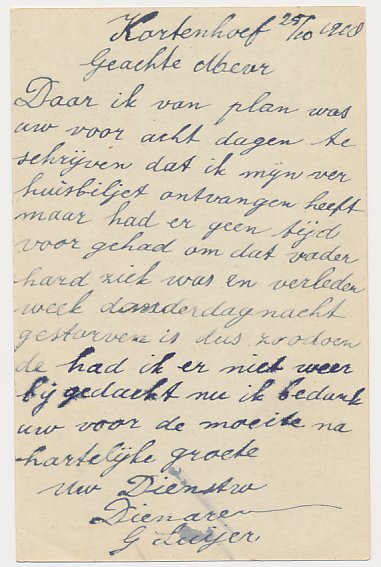 Kortenhoef 25/10 1918
Geachte Mevr
Daar ik van plan was
uw voor acht dagen te
schrijven dat ik mijn ver
huisbiljet ontvangen heeft
maar had er geen tijd
voor gehad om dat vader
hard ziek was en verleden
week donderdagnacht
gestorven is dus zoodoen
de had ik er niet weer
bij gedacht nu ik bedank
uw voor de moeite na
hartelijke groete
Uw Dienstw
Dienaren
G Luijer